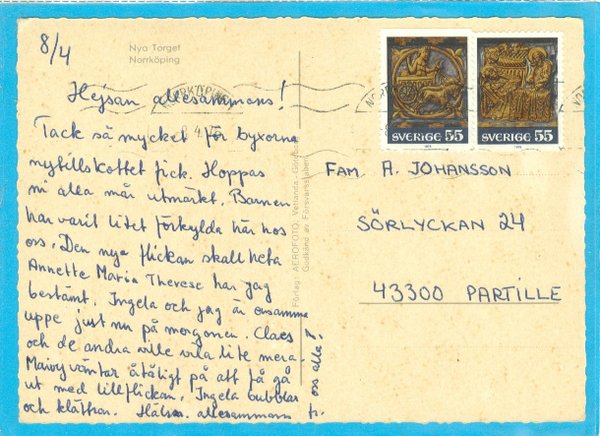 8/4
Nya Torget
Norrköping
Hejsan allesammans!
Tack så mycket för byxorna
nytillskottet fick. Hoppas
ni alla mår utmärkt. Barnen
har varit litet förkylda här hos
oss. Den nya flickan skall heta
Annette Maria Therese har jag
bestämt. Ingela och jag är ensamma
uppe just nu på morgonen. Claes
och de andra ville vila lite mera.
väntar otåligt på att få gå
ut med lillflickan. Ingela bubblar
och klättrar. Hälsn. allesammans
fr. oss alla!
Förlag: AEROFOTO, Vetlanda
Godkänd av Försvarsstaben
NORRKÖPING
SVERIGE 55
SVERIGE 55
FAM. A. JOHANSSON
SÖRLYCKAN 24
43300 PARTILLE